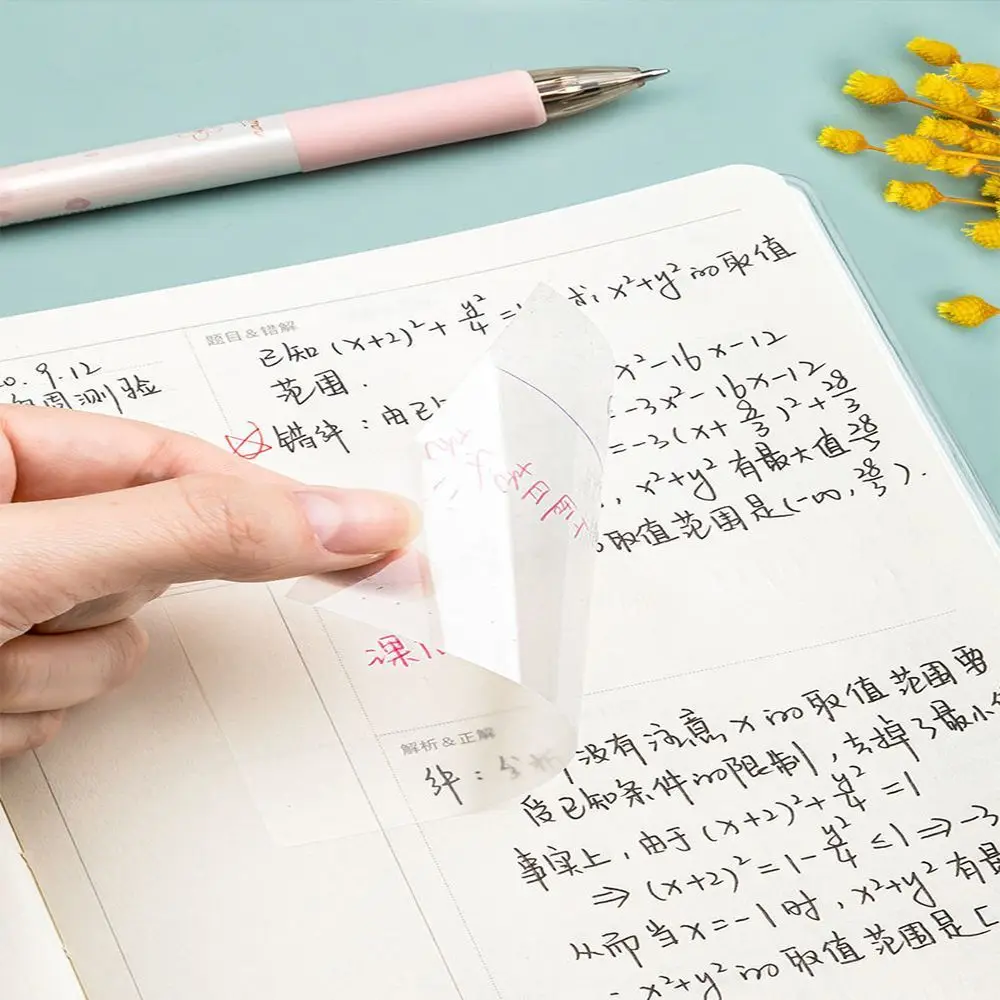 0.9.12
周测验
题目&错解
已知(x+2)²+y²/4=1 求x²+y²的取值
范围.
错解:由已
x²-16x-12
=-3x²-16x-12
=-3(x+8/3)²+28/3
,x²+y²有最大值28/3
取值范围是(-∞,28/3).
课
解析&正解
解:分析 没有注意x的取值范围要
受已知条件的限制,去掉了最小
事实上,由于(x+2)²+y²/4=1
⇒(x+2)²=1-y²/4≤1⇒-3
从而当x=-1时,x²+y²有最
x²+y²的取值范围是[